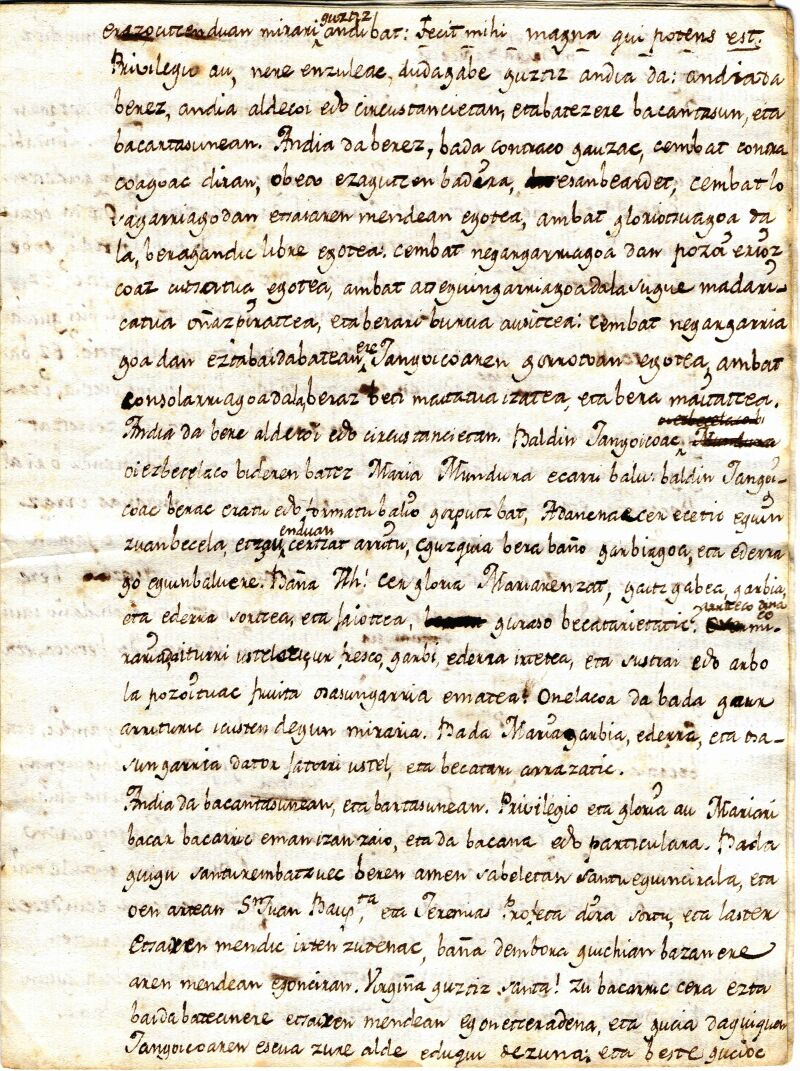 erazoutcenduan mirari guztiz andi bat: Fecit mihi magna qui potens est.
Privilegio au, nere enzuleac, dudagabe guztiz andia da: andia da
berez, andia aldecoi edo circustancietan, eta batez ere bacantasun, eta
bacartasunean. Andia da berez, bada contraco gauzac, cembat contra
coagoac diran, obeto ezagutcen badira, esan beardet, cembat lo
tsagarriago dan etsaiaren mendean egotea, ambat gloriotsuagoa da
la, beragandic libre egotea: cembat negargarriagoa dan pozoi erioz
coaz cutsatua egotea, ambat atseguingarriagoa dala sugue madari-
catua oñazpiratcea, eta berari burua austea: cembat negargarria
goa dan ezta baida batean ere Jangoicoaren gorrotoan egotea, ambat
consolarriagoa dala, beraz beti maitatua izatea, eta bera maitatcea.
Andia da bere aldecoi edo circustancietan. Baldin Jangoicoac
oiezbecelaco bideren batez Maria Mundura ecarri balu: baldin Jangoi-
coac berac eratu edo formatu balio gorputz bat, Adanena cer ecetic eguin
zuan becela, cerizat artu, eguzquia bera baño garbiagoa, eta ederra
go eguin balu ere. Baña Ah! cer gloria Mariarenzat, gaitz gabea, garbia,
eta ederra sortcea, eta jaiotcea, guraso becatarietatic!
iturri usteletic, ur fresco, garbi, ederra irtetea, eta sustrai edo arbo
la pozoituac fruita osasungarria ematea! Onelacoa da bada gaur
arrituric icusten degun miraria. Bada Maria garbia, ederra, eta osa-
sungarria dator jatorri ustel, eta becatari arrazatic.
Andia da bacantasunean, eta bartasunean. Privilegio eta gloria au Mariari
bacar bacarric eman izan zaio, eta da bacana edo particulara. Bada
guigu santuren batzuec beren amen sabeletan santu eguin cirala, eta
oen artean Sn Juan Baupta, eta Jeremias Profeta dira sortu, eta laster
etsaiaren mendic irten zutenac, baña dembora guichian bazan ere
aren mendean egon ciran. Virgiña guztiz santa! zu bacarric cera ezta
baida batecinere etsaiaren mendean egon etceradena, eta gucia daguiquen
Jangoicoaren escua zure alde eduqui dezuna: eta beste gucioc